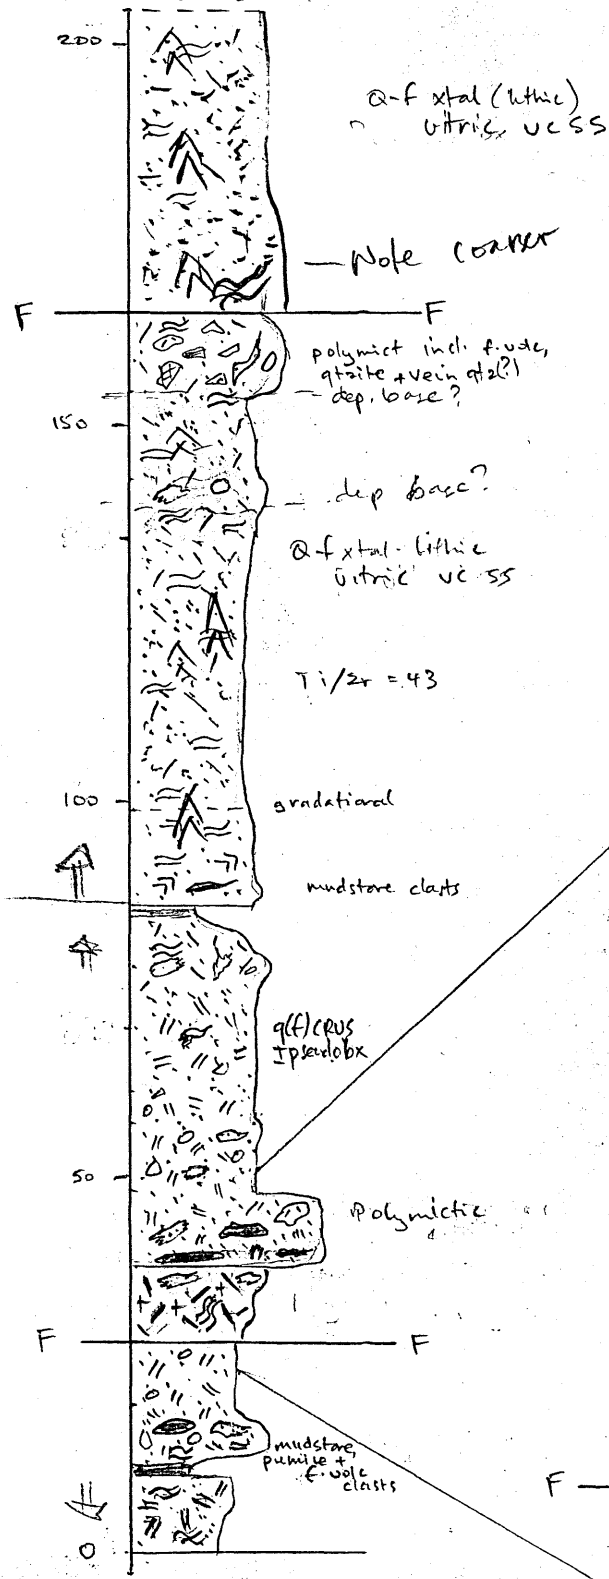 200
Q-f xtal (lithic)
vitric vc ss
— Note coarser
F F
polymict incl. f. volc,
qtzite + vein qtz(?)
dep. base?
150
dep base?
Q-f xtal-lithic
vitric vc ss
Ti/Zr = 43
100
gradational
mudstone clasts
q(f)CRUS
± pseudobx
50
Polymictic
F F
mudstone,
pumice +
f. volc
clasts
F
0